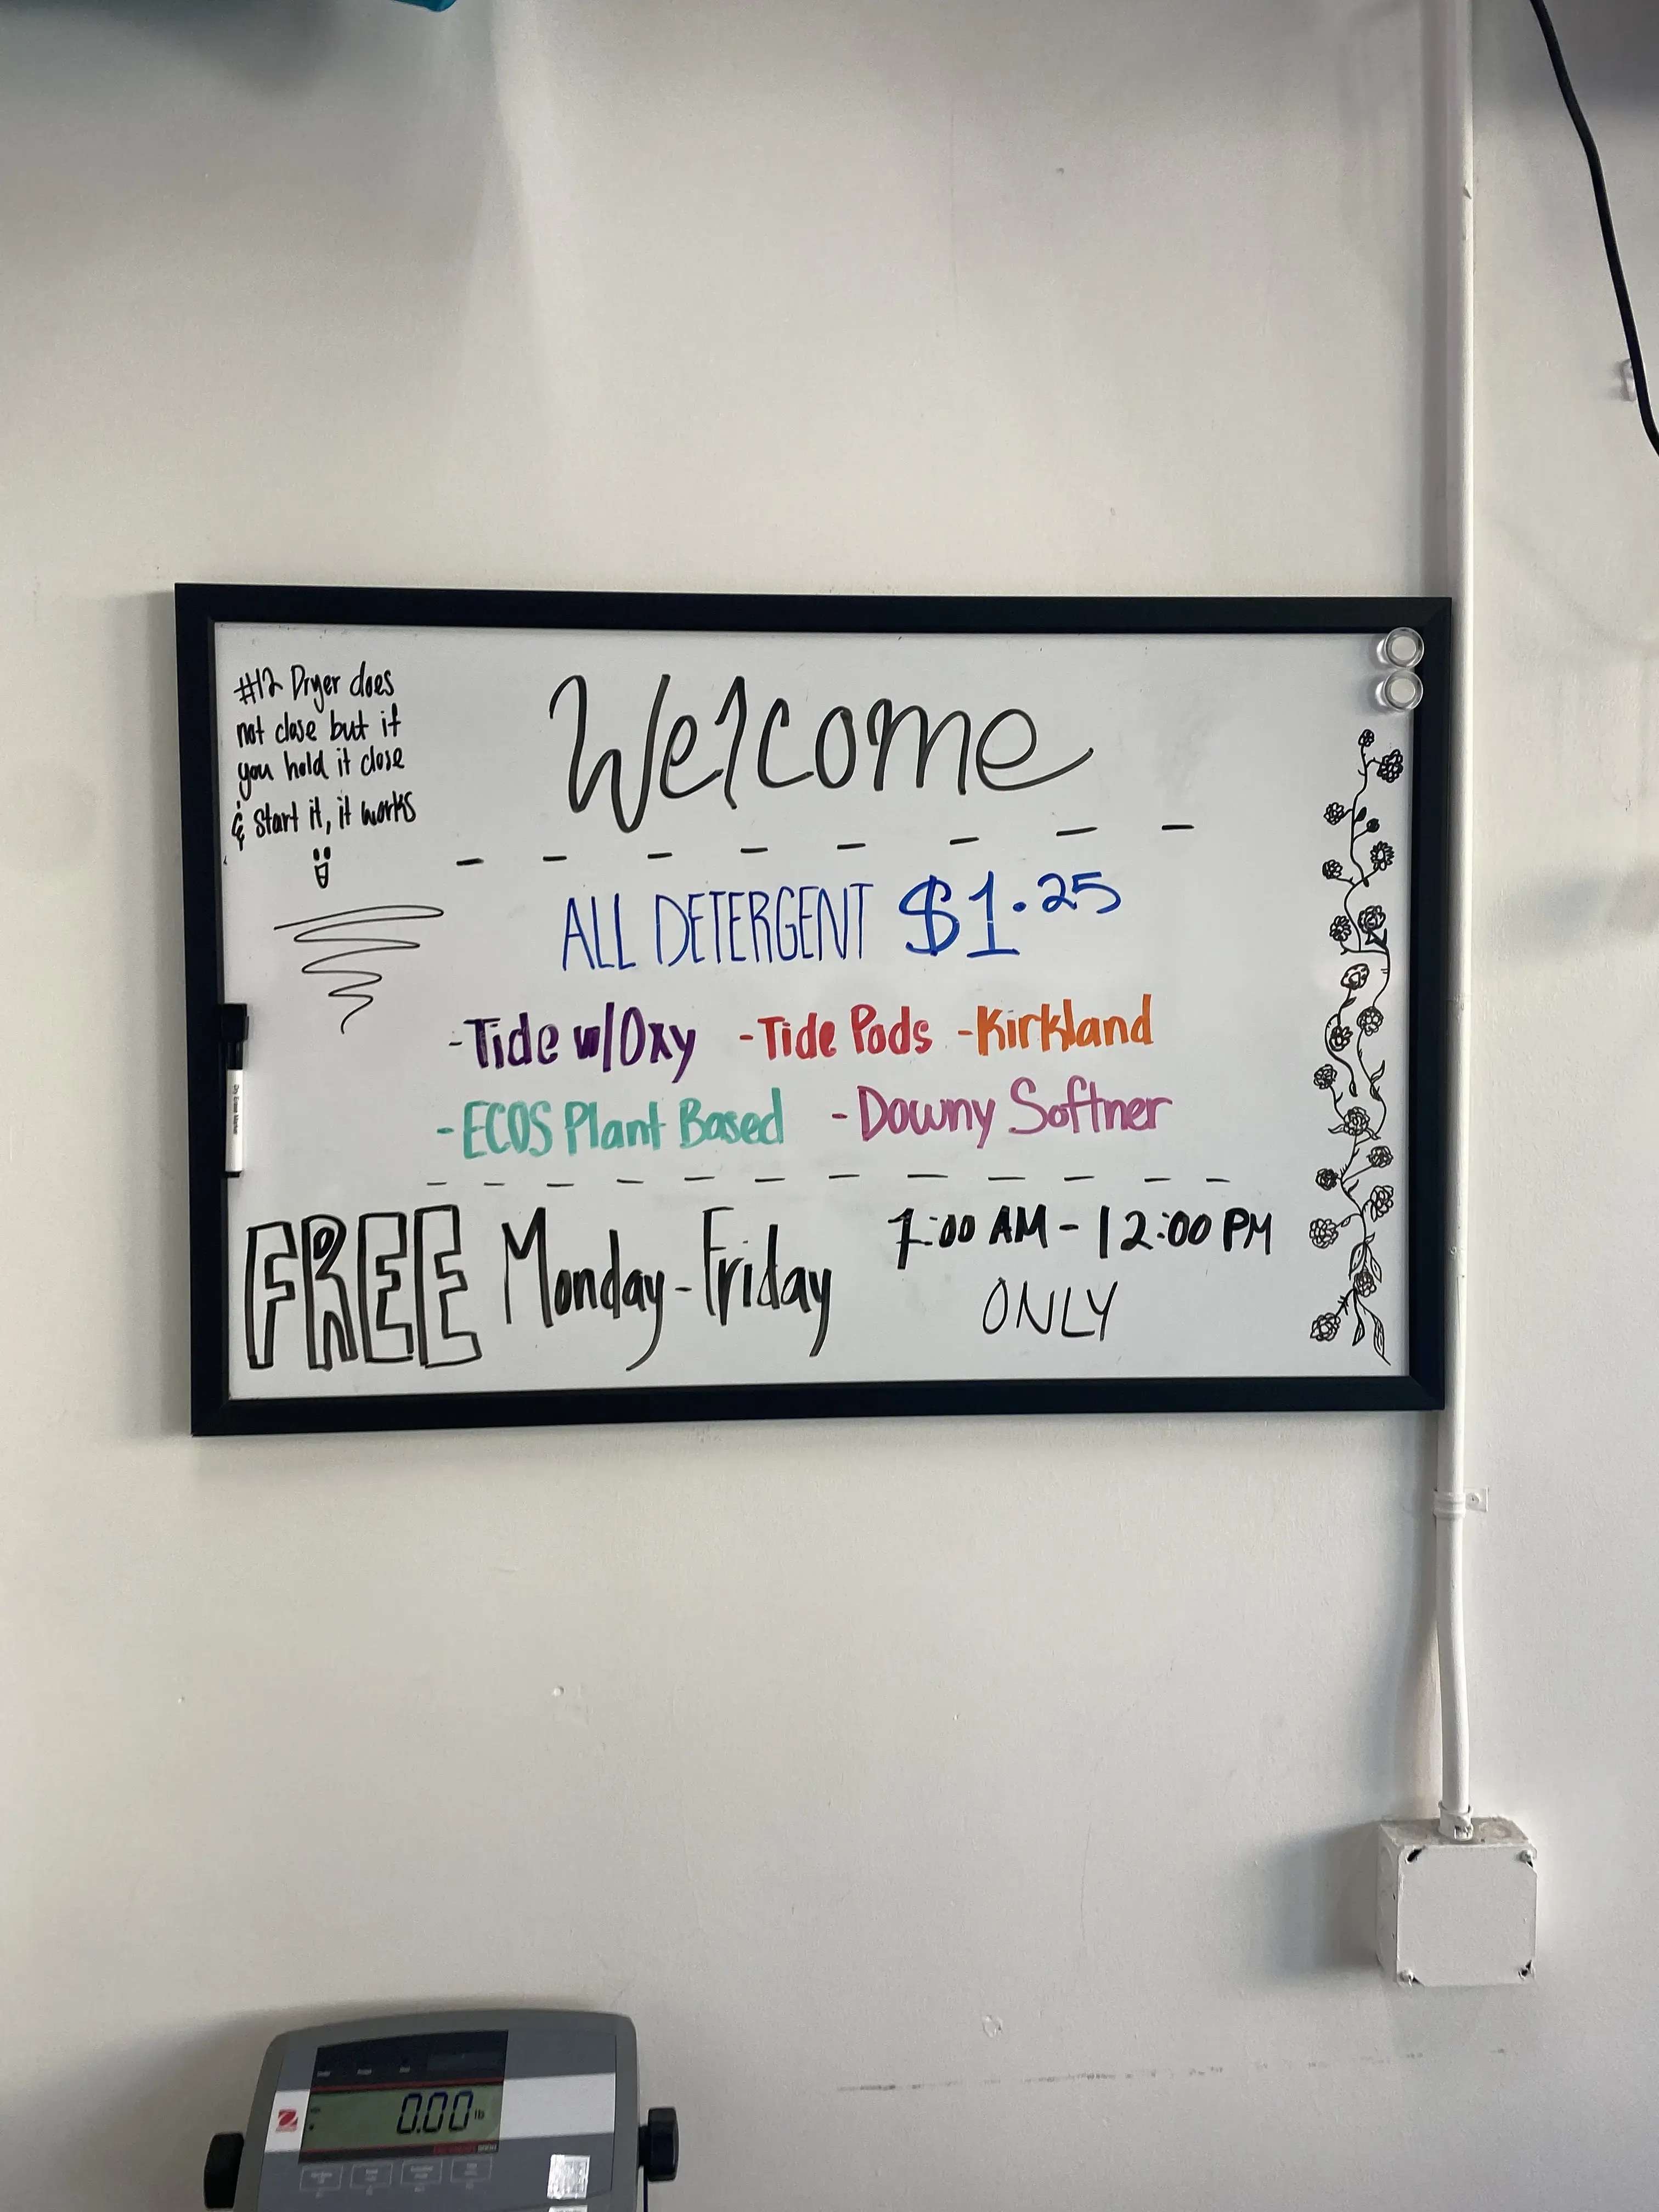 #12 Dryer does
not close but if
you hold it close
& start it, it works
Welcome
ALL DETERGENT $1.25
-Tide w/Oxy -Tide Pods -Kirkland
-ECOS Plant Based -Downy Softner
FREE Monday-Friday 7:00 AM - 12:00 PM
ONLY
Dry Erase Marker
0.00 lb